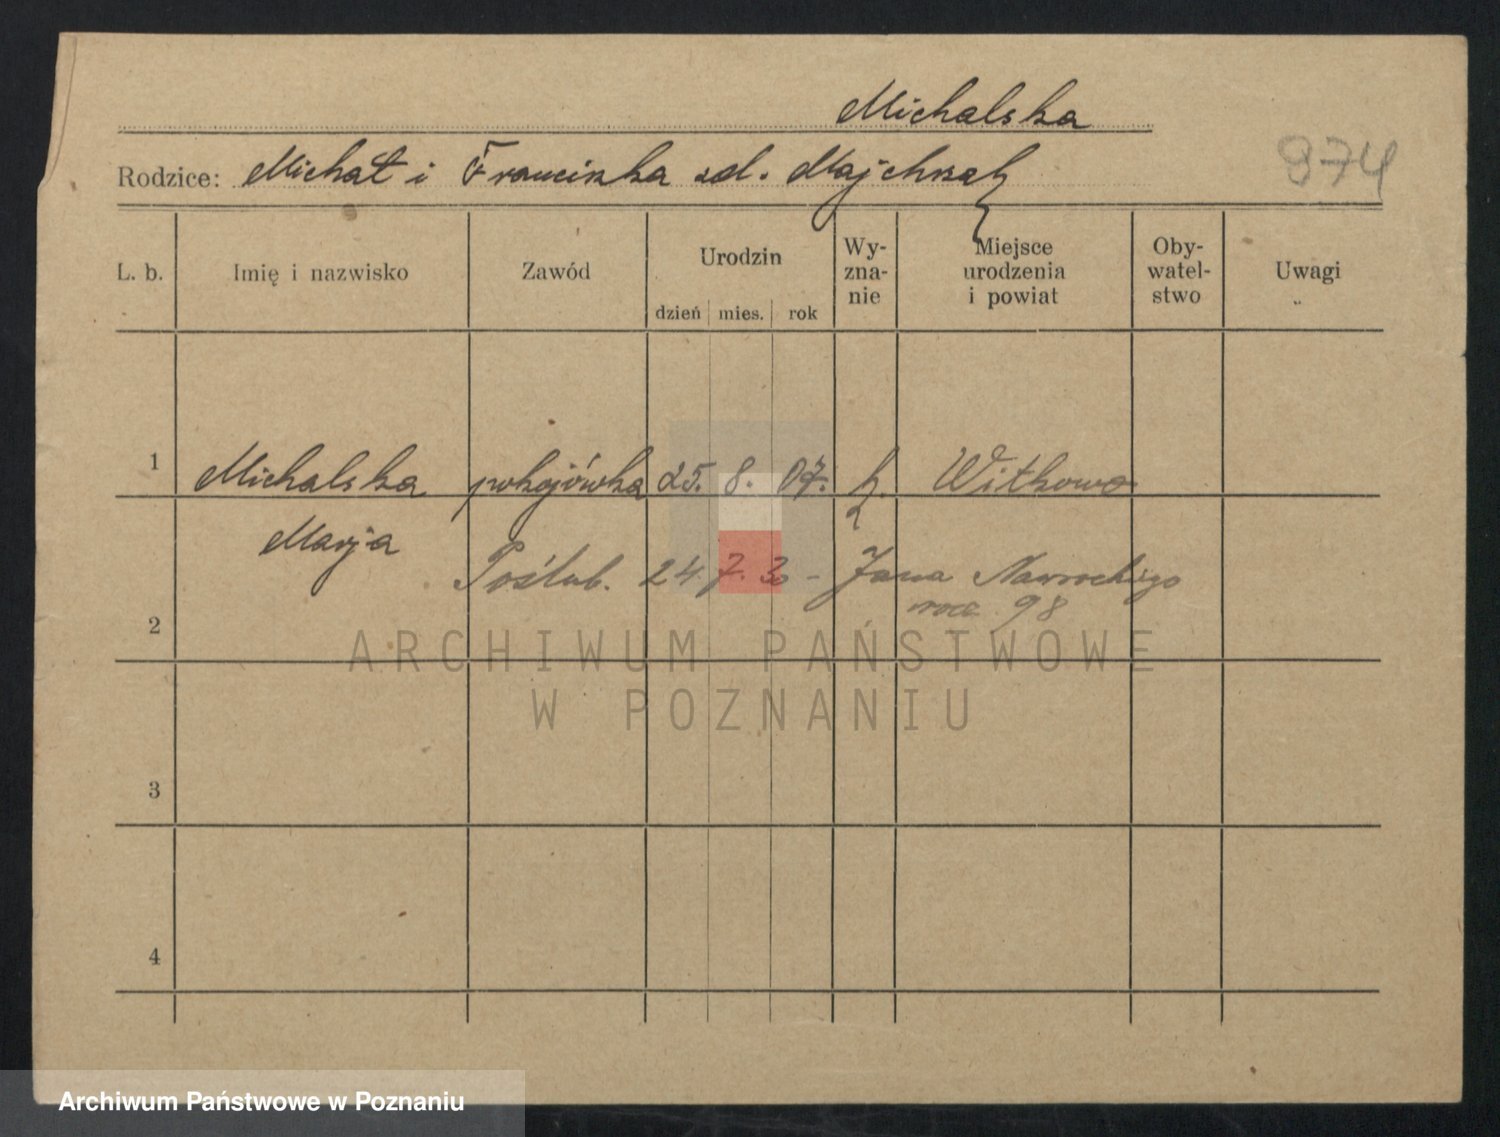 Michalska
Rodzice: Michał i Franciszka zd. Majchrzak
974
L. b. Imię i nazwisko Zawód Urodzin dzień mies. rok Wy-zna-nie Miejsce urodzenia i powiat Oby-watel-stwo Uwagi
1 Michalska pokojówka 25. 8. 07. k. Witkowo
Marja
Poślub. 24. 7. 3 - Jana Nawrockiego
98
2
3
4
ARCHIWUM PAŃSTWOWE
W POZNANIU
Archiwum Państwowe w Poznaniu